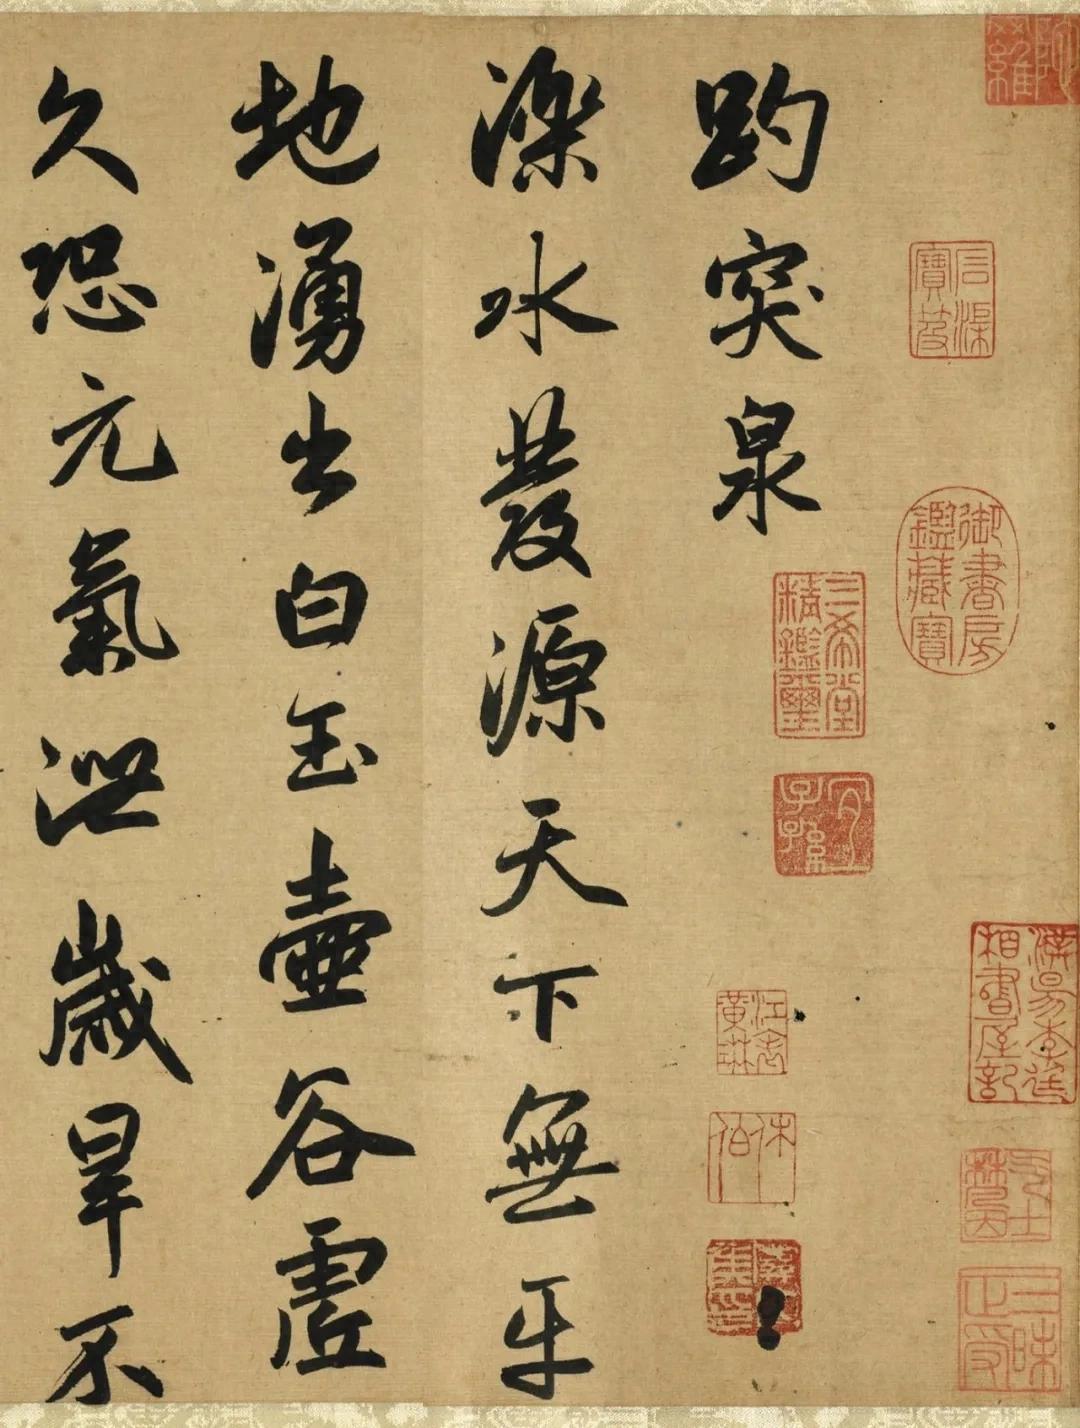 石渠寶笈
御書房鑑藏寶
三昧正受
三希堂精鑑璽
宜子孫
江表黃琳
休伯
趵突泉
濼水發源天下無平
地湧出白玉壺谷虛
久恐元氣泄歲旱不